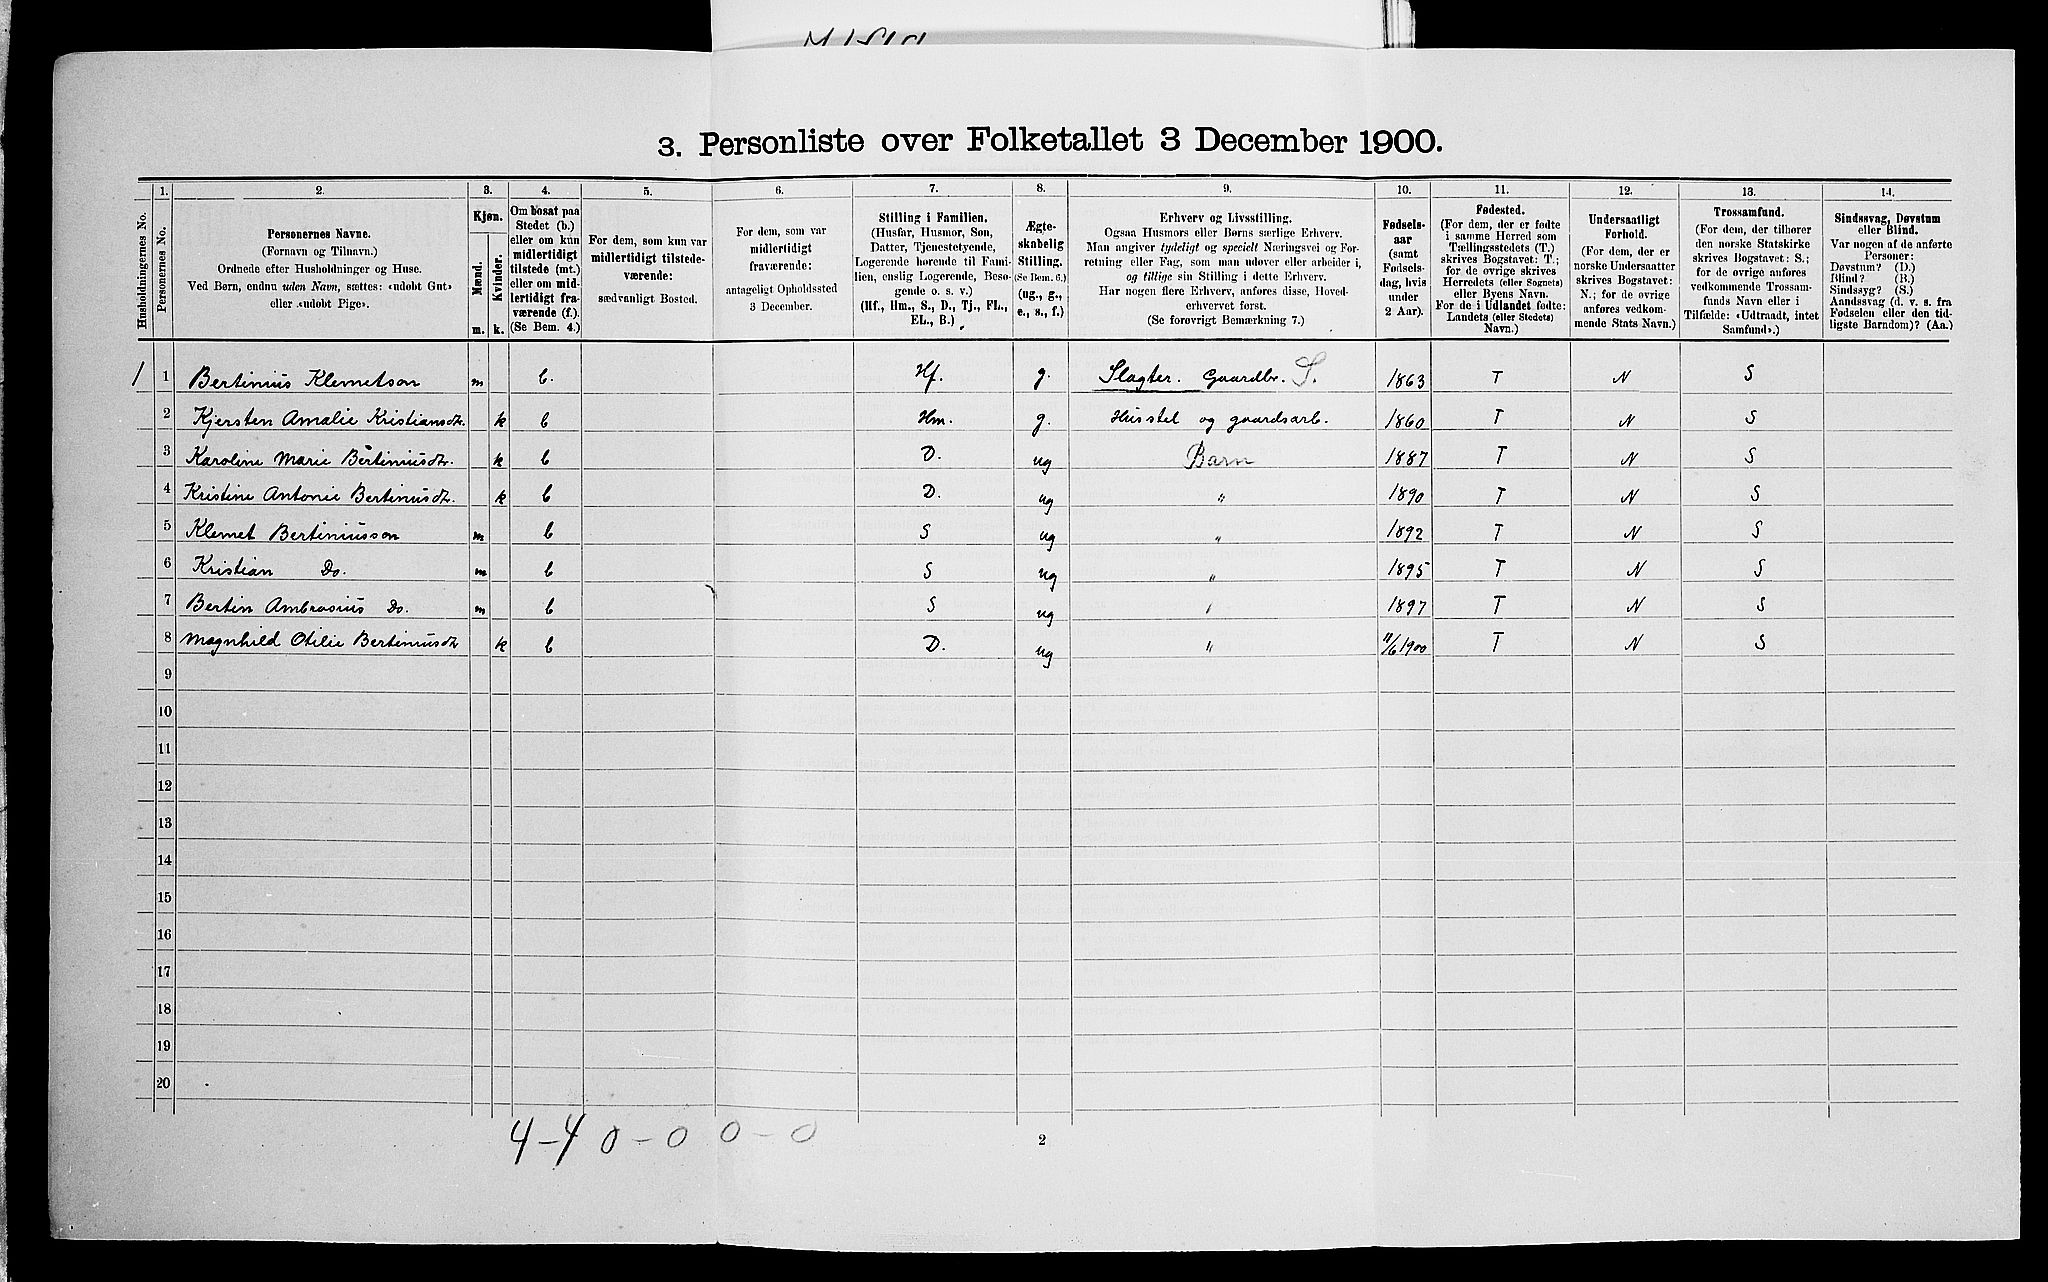 3. Personliste over Folketallet 3 December 1900.
1. 2. 3. 4. 5. 6. 7. 8. 9. 10. 11. 12. 13. 14.
Husholdningernes No.
Personernes No.
Personernes Navne.
(Fornavn og Tilnavn.)
Ordnede efter Husholdninger og Huse.
Ved Børn, endnu uden Navn, sættes: «udøbt Gut»
eller «udøbt Pige».
Kjøn.
Mænd.
Kvinder.
m. k.
Om bosat paa
Stedet (b.)
eller om kun
midlertidigt
tilstede (mt.)
eller om mid-
lertidigt fra-
værende (f.).
(Se Bem. 4.)
For dem, som kun var
midlertidigt tilstede-
værende:
sædvanligt Bosted.
For dem, som var
midlertidigt
fraværende:
antageligt Opholdssted
3 December.
Stilling i Familien.
(Husfar, Husmor, Søn,
Datter, Tjenestetyende,
Logerende hørende til Fami-
lien, enslig Logerende, Besø-
gende o. s. v.)
(Hf., Hm., S., D., Tj., FL.,
EL., B.)
Ægte-
skabelig
Stilling.
(Se Bem. 6.)
(ug., g.,
e., s., f.)
Erhverv og Livsstilling.
Ogsaa Husmors eller Børns særlige Erhverv.
Man angiver tydeligt og specielt Næringsvei og For-
retning eller Fag, som man udøver eller arbeider i,
og tillige sin Stilling i dette Erhverv.
Har nogen flere Erhverv, anføres disse, Hoved-
erhvervet først.
(Se forøvrigt Bemærkning 7.)
Fødsels-
aar
(samt
Fødsels-
dag, hvis
under
2 Aar).
Fødested.
(For dem, der er fødte
i samme Herred som
Tællingsstedets (T.)
skrives Bogstavet: T.;
for de øvrige skrives
Herredets (eller Sognets)
eller Byens Navn.
For de i Udlandet fødte:
Landets (eller Stedets)
Navn.)
Undersaatligt
Forhold.
(For dem, der er
norske Undersaatter
skrives Bogstavet:
N.; for de øvrige
anføres vedkom-
mende Stats Navn.)
Trossamfund.
(For dem, der tilhører
den norske Statskirke
skrives Bogstavet: S.;
for de øvrige anføres
vedkommende Trossam-
funds Navn eller i
Tilfælde: «Udtraadt, intet
Samfund».)
Sindssvag, Døvstum
eller Blind.
Var nogen af de anførte
Personer:
Døvstum? (D.)
Blind? (B.)
Sindssyg? (S.)
Aandssvag (d. v. s. fra
Fødselen eller den tid-
ligste Barndom)? (Aa.)
1 1 Bertinius Klemetson m b. Hf. g. Slagter. Gaardbr. S. 1863 T N S
2 Kjersten Amalie Kristiansdtr. k b Hm. g. Husstel og gaardsarb. 1860 T N S
3 Karoline Marie Bertiniusdtr. k b D. ug Barn 1887 T N S
4 Kristine Antonie Bertinusdtr. k b D. ug " 1890 T N S
5 Klemet Bertiniusson m b S ug " 1892 T N S
6 Kristian Do. m b S ug " 1895 T N S
7 Bertin Ambrosius Do. m b S ug " 1897 T N S
8 Magnhild Otilie Bertiniusdtr k b D. ug " 11/6 1900 T N S
9
10
11
12
13
14
15
16
17
18
19
20
4-4 0-0 0-0
2